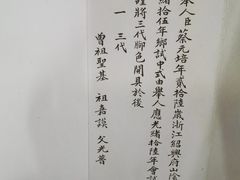 本人臣蔡元培年貳拾陸歲浙江紹興府山陰
緒拾伍年鄉試中式由舉人應光緒拾陸年會試
謹將三代腳色開具於後
一 三代
曾祖聖基 祖嘉謨 父光普